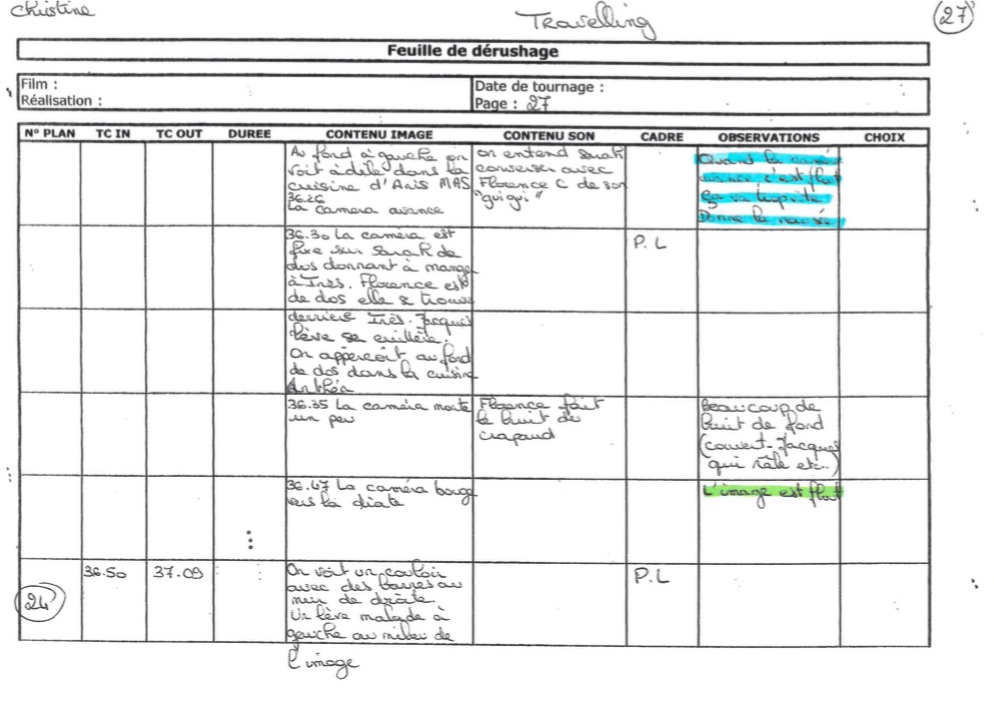 Christine
Travelling
27
Feuille de dérushage
Film :
Réalisation :
Date de tournage :
Page : 27
N° PLAN TC IN TC OUT DUREE CONTENU IMAGE CONTENU SON CADRE OBSERVATIONS CHOIX
Au fond à gauche on
voit adèle dans la
cuisine d'Anis MAS
36.26
La camera avance
on entend Sarah
converser avec
Florence C de son
"gui gui"
Quand la camé
avance, c'est flou
ça va trop vite
Donne la nausée
36.30 La caméra est
fixe sur Sarah de
dos donnant à mange
à Inès. Florence est
de dos elle se trouve
P.L
derrière Inès. Jacques
lève se cuillère.
On apperçoit au fond
de dos dans la cuisine
Anthéa
36.35 La caméra monte
un peu
Florence fait
le bruit de
crapaud
Beaucoup de
bruit de fond
(couvert-Jacques
qui râle etc..)
36.47 La caméra bouge
vers la droite
L'image est flou
24
36.50
37.09
On voit un couloir
avec des barres au
mur de droite.
Un lève malade à
gauche au milieu de
l'image
P.L